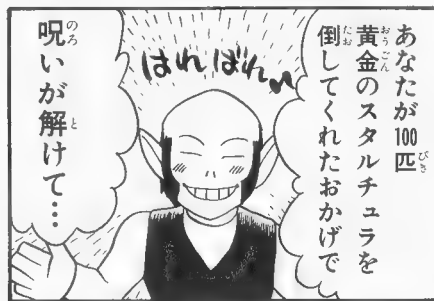 あなたが100匹
黄金のスタルチュラを
倒してくれたおかげで
はればれ
呪いが解けて…